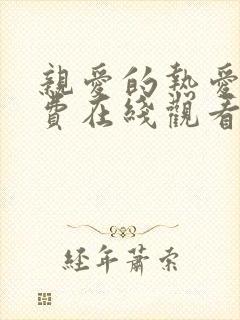 親愛的熱愛
費在綫觀看
經年蕭索